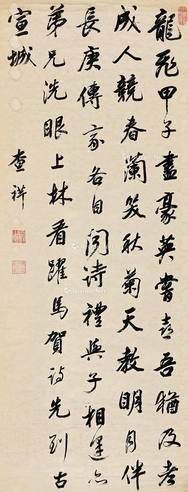 龍飛甲子盡豪英嘗喜吾猶及老
成人競春蘭笑秋菊天教明月伴
長庚傳家各自聞詩禮與子相逢亦
弟兄洗眼上林看躍馬賀詩先到古
宣城
查祥